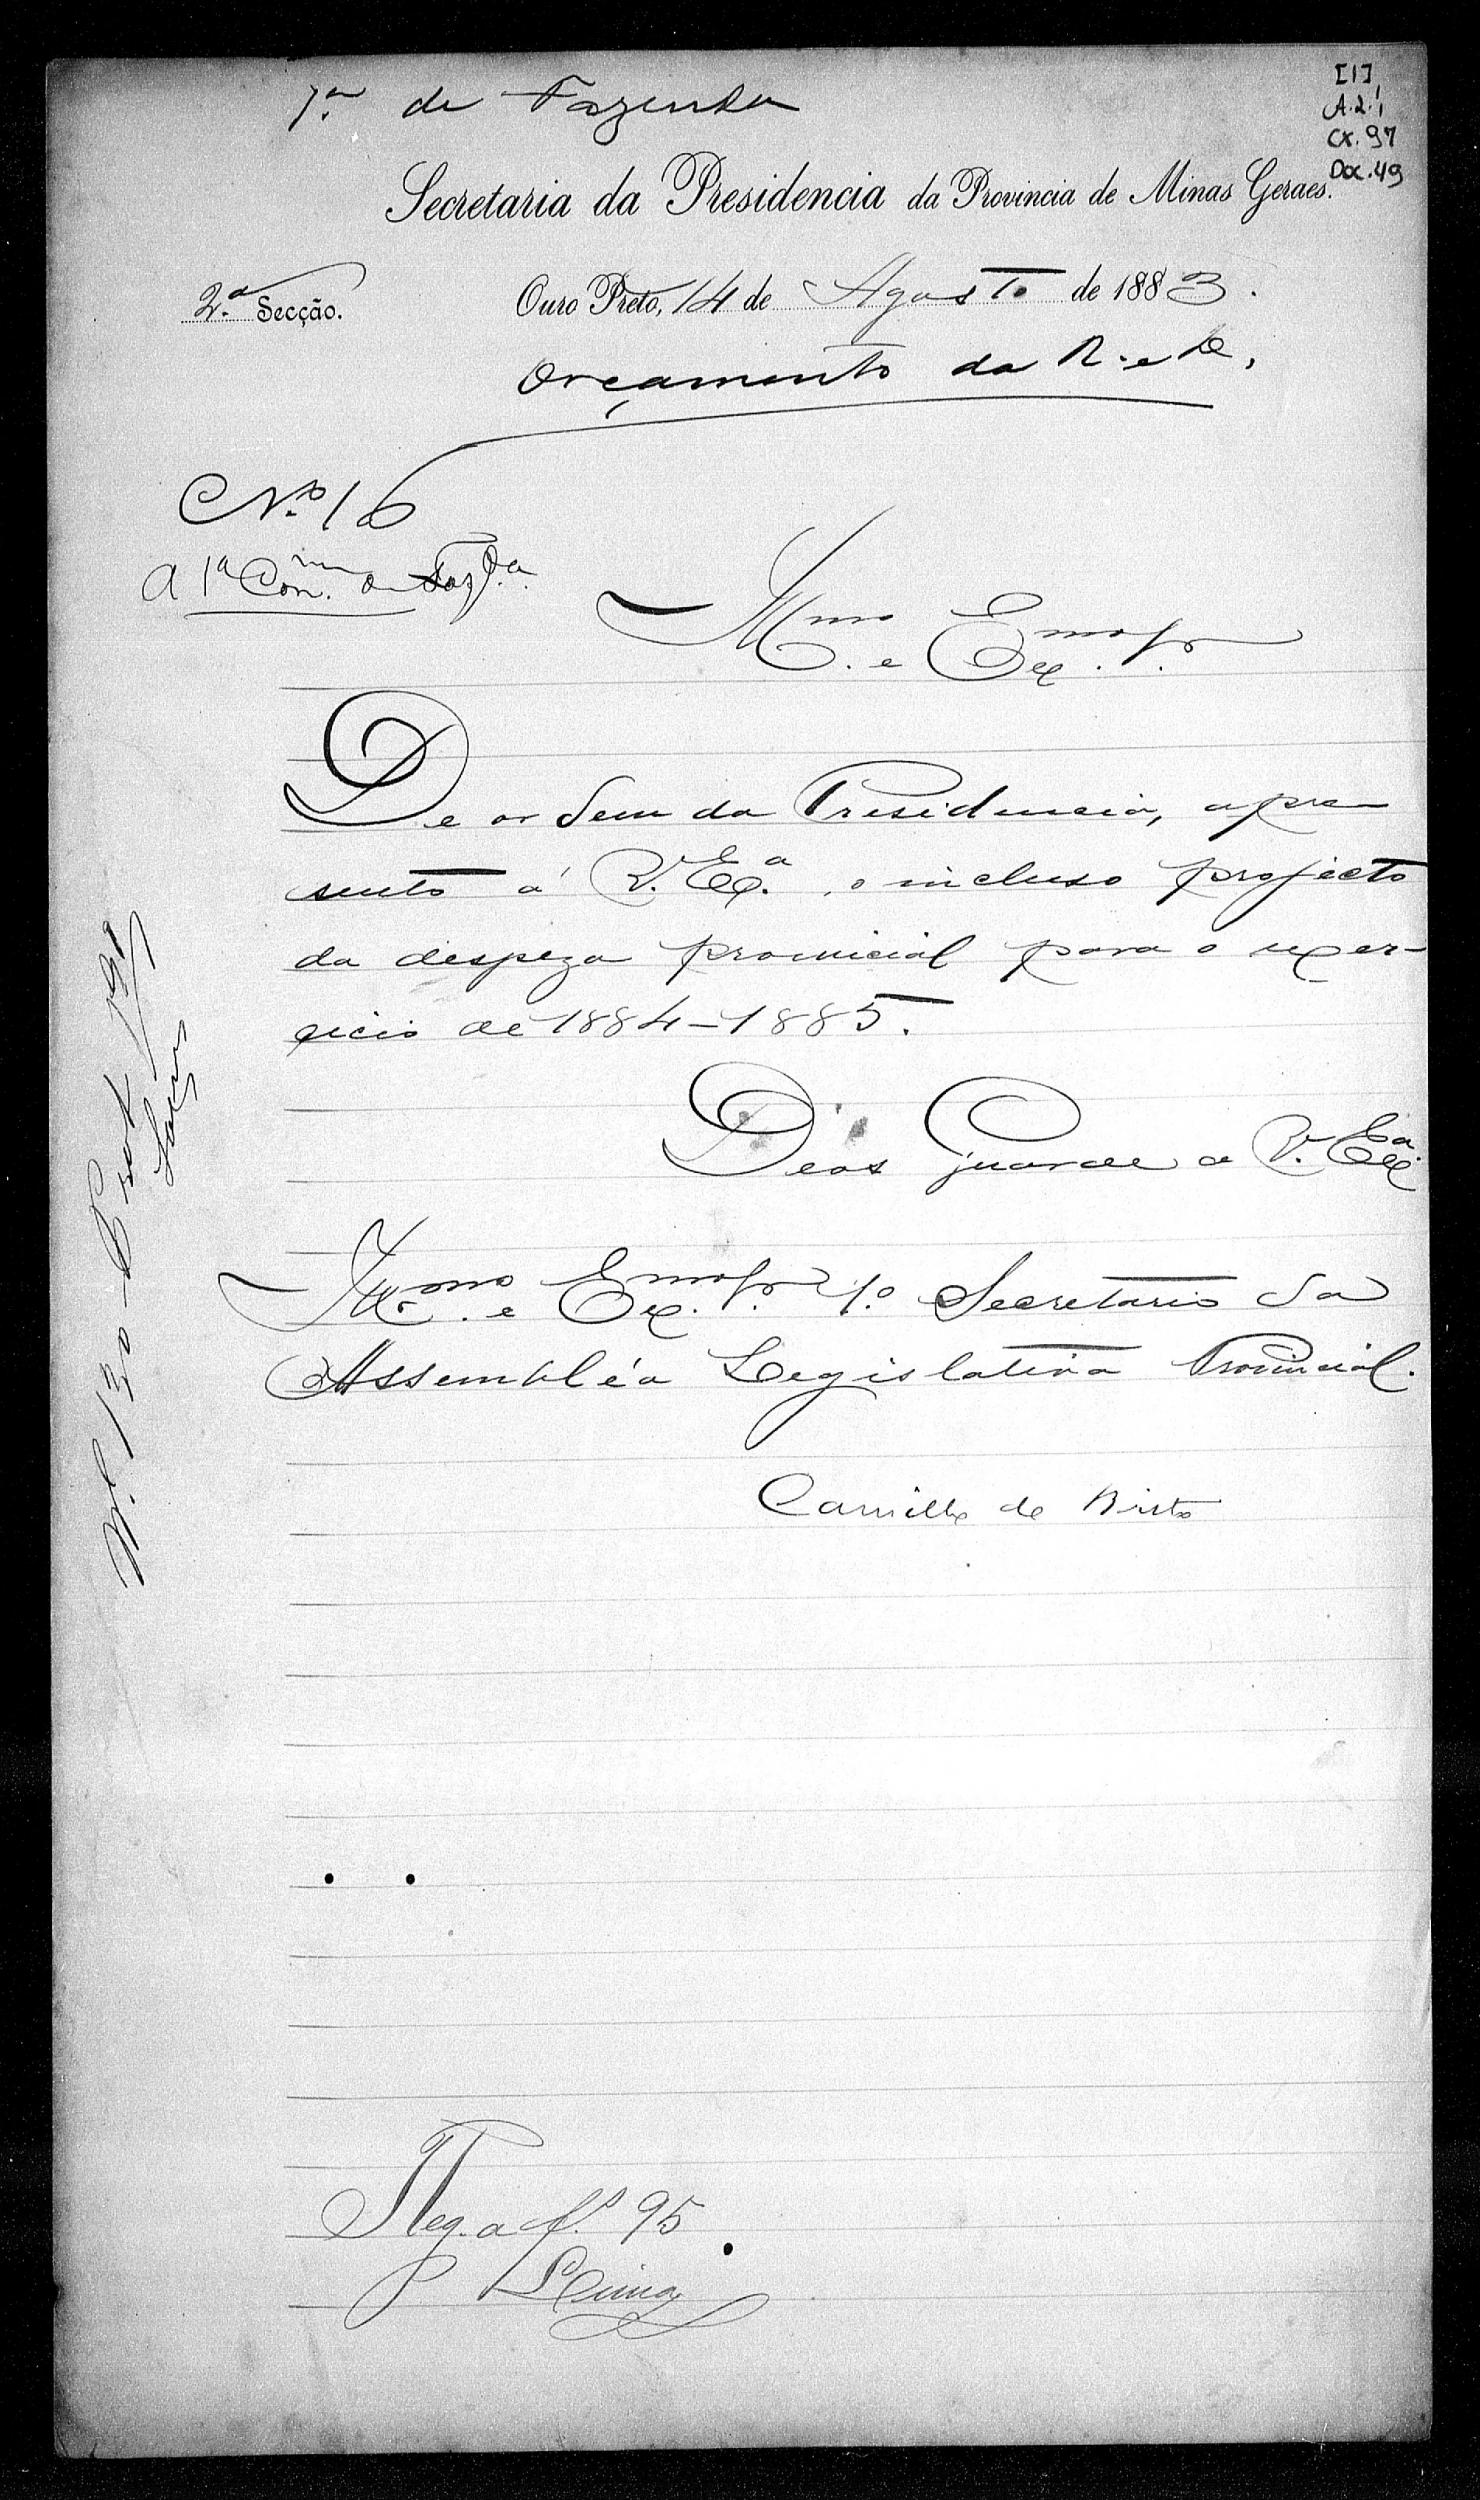 [1]
A.2.1
CX. 97
Doc. 49
1.ª de Fazenda
Secretaria da Presidencia da Provincia de Minas Geraes.
2.ª Secção.
Ouro Preto, 14 de Agosto de 1883.
Orçamento da R. e D.
N.º 16
A 1ª Com. de Fazd.ª
Illmo. e Exmo. Sr.
De ordem da Presidencia, apre
sento á V. Exª. o incluso projecto
da despeza provincial para o exer-
cicio de 1884-1885.
Deos Guarde a V. Exª.
Illmo. e Exmo. Sr. 1.º Secretario da
Assembléa Legislativa Provincial.
Camillo de Brito
N.º 130 Prot
Reg. a fl. 95
P Lima